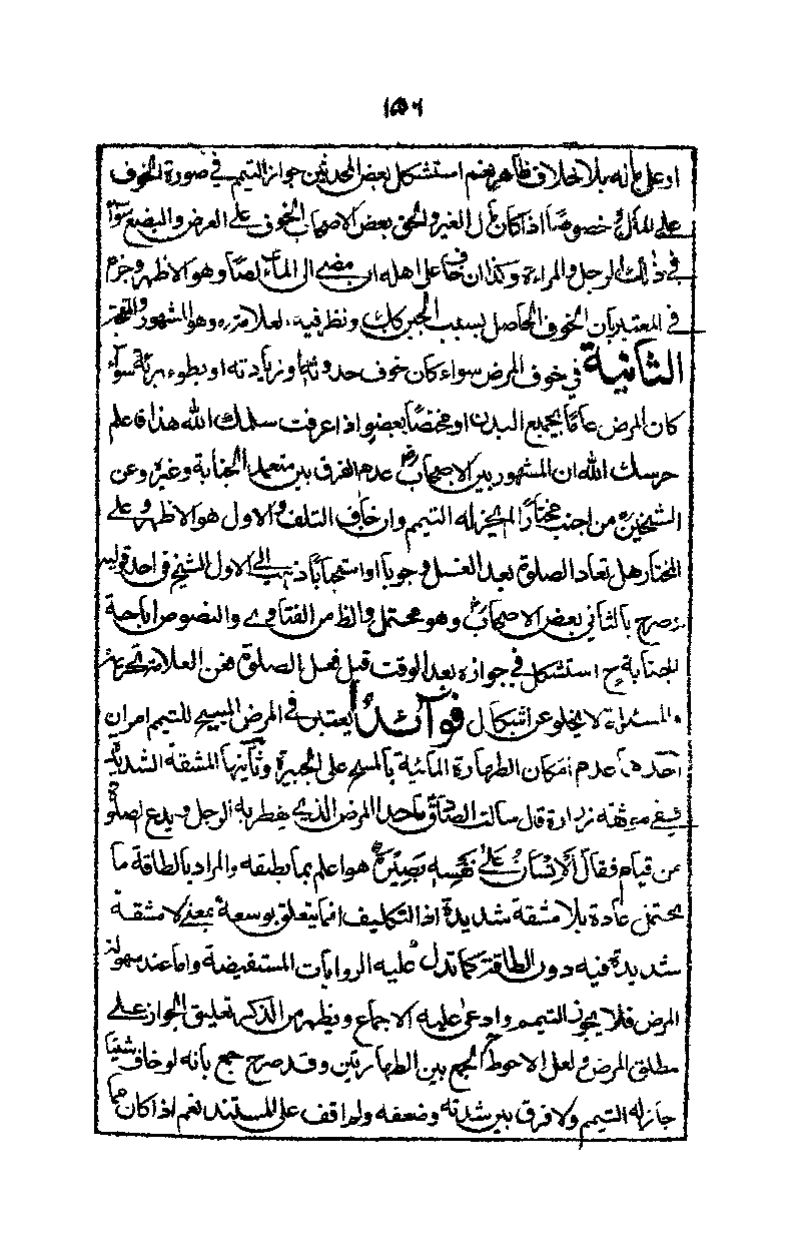 ١٥٦
او على بلا خلاف ظاهر نعم استشكل بعض المحدثين جواز التيمم في صورة الخوف
على المال خصوصًا اذا كان مال الغير والحق بعض الاصحاب الخوف على العرض والبضع سواء
في ذلك الرجل والمراءة وكذا ان خاف على اهله ان مضى الى الماء نصًا وهو الاظهر وجزم
في المعتبر بان الخوف الحاصل بسبب الجبن كذلك ونظر فيه العلامة ره وهو المشهور والمختار
الثانية في خوف المرض سواء كان خوف حدوثه او زيادته او بطوء برئه سواء
كان المرض عامًا لجميع البدن او مختصًا بعضو اذا عرفت سلمك الله هذا فاعلم
حرسك الله ان المشهور بين الاصحاب رض عدم الفرق بين متعمد الجنابة وغيره وعن
الشيخين ره من اجنب مختارًا لم يجز له التيمم وان خاف التلف والاول هو الاظهر وعلى
المختار هل تعاد الصلوة بعد الغسل وجوبا او استحبابًا ذهب الى الاول الشيخ في احد قوليه
وصرح بالثاني بعض الاصحاب وهو محتمل والظ من الفتاوى والنصوص اباحة
الجنابة ح استشكل في جوازه بعد الوقت قبل فعل الصلوة فعن العلامة تحريمه
والمسئلة لا يخلو عن اشكال فوائد يعتبر في المرض المبيح للتيمم امران
احدهما عدم امكان الطهارة المائية بالمسح على الجبيرة وثانيها المشقة الشديدة
ففي موثقة زرارة قال سالت الصادق ما حد المرض الذي يفطر به الرجل ويدع الصلوة
من قيام فقال الانسان على نفسه بصيرة هو اعلم بما يطيقه والمراد بالطاقة ما
يحتمل عادة بلا مشقة شديدة اذ التكليف انما يتعلق بوسعه بمعنى لا مشقة
شديدة فيه دون الطاقة كما تدل عليه الروايات المستفيضة واما عند سهولة
المرض فلا يجوز التيمم وادعى عليه الاجماع ويظهر من الذكرى تعليق الجواز على
مطلق المرض ولعل الاحوط الجمع بين الطهارتين وقد صرح جمع بانه لو خاف شينا
جاز له التيمم ولا فرق بين شدته وضعفه ولم اقف على المستند نعم اذا كان مما